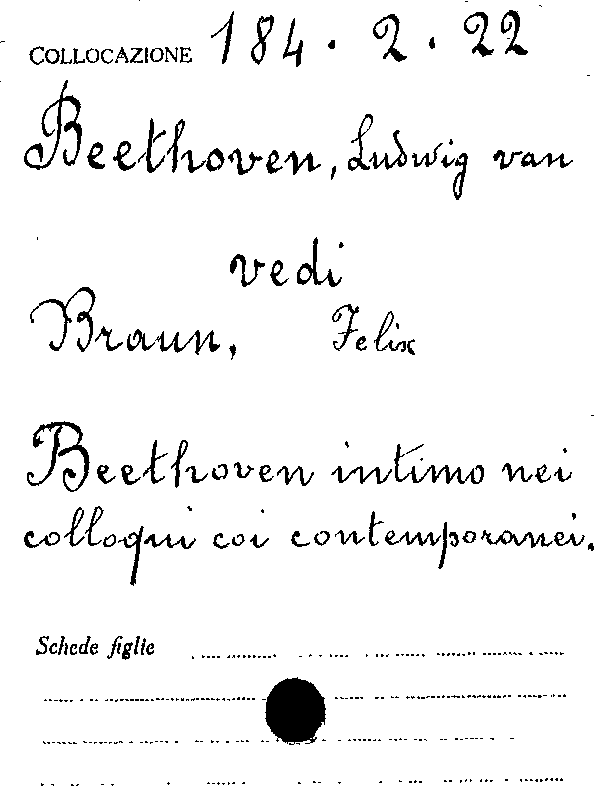 COLLOCAZIONE 184.2.22
Beethoven, Ludwig van
vedi
Braun, Felix
Beethoven intimo nei
colloqui coi contemporanei.
Schede figlie